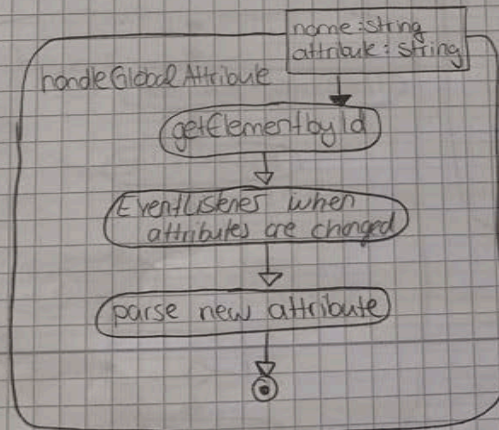 name:string
attribute: string
handleGlobalAttribute
getElementbyId
EventListener when
attributes are changed
parse new attribute